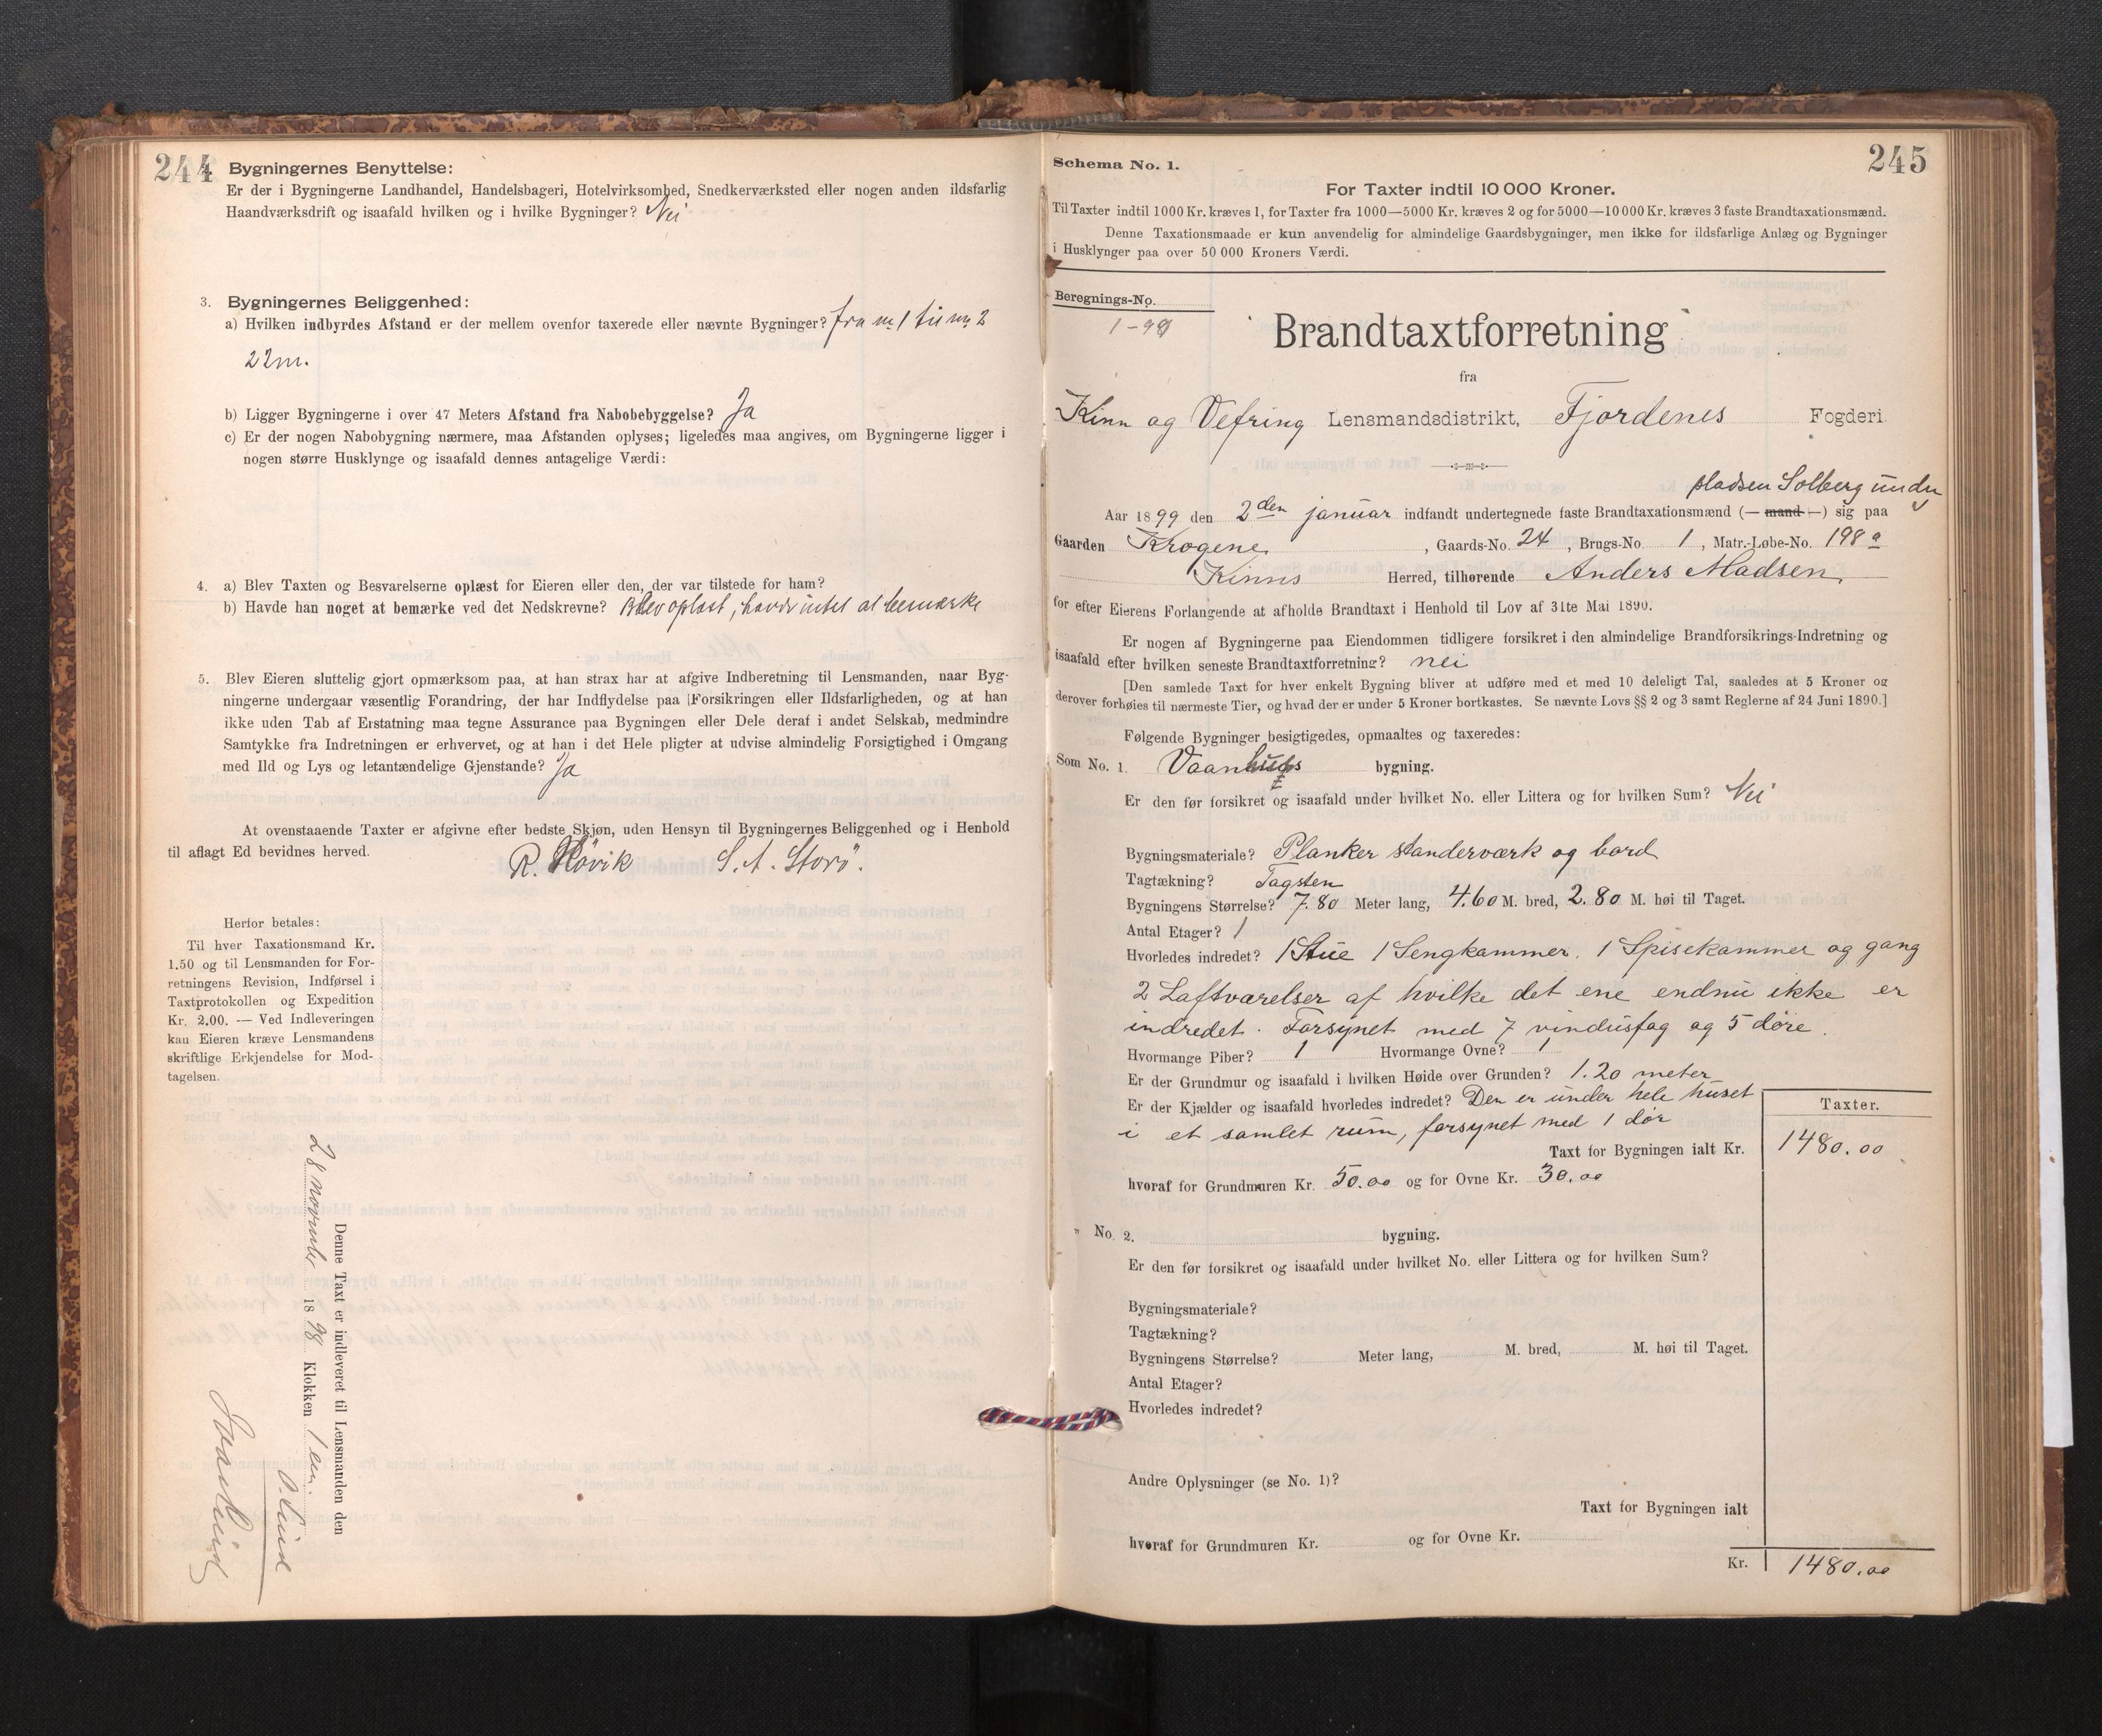 244
Bygningernes Benyttelse:
Er der i Bygningerne Landhandel, Handelsbageri, Hotelvirksomhed, Snedkerværksted eller nogen anden ildsfarlig
Haandværksdrift og isaafald hvilken og i hvilke Bygninger? Nei
3. Bygningernes Beliggenhed:
a) Hvilken indbyrdes Afstand er der mellem ovenfor taxerede eller nævnte Bygninger? fra nr 1 til nr 2
22m.
b) Ligger Bygningerne i over 47 Meters Afstand fra Nabobebyggelse? Ja
c) Er der nogen Nabobygning nærmere, maa Afstanden oplyses; ligeledes maa angives, om Bygningerne ligger i
nogen større Husklynge og isaafald dennes antagelige Værdi:
4. a) Blev Taxten og Besvarelserne oplæst for Eieren eller den, der var tilstede for ham?
b) Havde han noget at bemærke ved det Nedskrevne? Blev oplæst, havde intet at bemærke
5. Blev Eieren sluttelig gjort opmærksom paa, at han strax har at afgive Indberetning til Lensmanden, naar Byg-
ningerne undergaar væsentlig Forandring, der har Indflydelse paa Forsikringen eller Ildsfarligheden, og at han
ikke uden Tab af Erstatning maa tegne Assurance paa Bygningen eller Dele deraf i andet Selskab, medmindre
Samtykke fra Indretningen er erhvervet, og at han i det Hele pligter at udvise almindelig Forsigtighed i Omgang
med Ild og Lys og letantændelige Gjenstande? Ja
At ovenstaaende Taxter er afgivne efter bedste Skjøn, uden Hensyn til Bygningernes Beliggenhed og i Henhold
til aflagt Ed bevidnes herved.
R. Høvik S. A. Storö.
Herfor betales:
Til hver Taxationsmand Kr.
1.50 og til Lensmanden for For-
retningens Revision, Indførsel i
Taxtprotokollen og Expedition
Kr. 2.00. — Ved Indleveringen
kan Eieren kræve Lensmandens
skriftlige Erkjendelse for Mod-
tagelsen.
Denne Taxt er indleveret til Lensmanden den
28 november 1898 Klokken 1 em
245
Schema No. 1.
For Taxter indtil 10 000 Kroner.
Til Taxter indtil 1000 Kr. kræves 1, for Taxter fra 1000—5000 Kr. kræves 2 og for 5000—10 000 Kr. kræves 3 faste Brandtaxationsmænd.
Denne Taxationsmaade er kun anvendelig for almindelige Gaardsbygninger, men ikke for ildsfarlige Anlæg og Bygninger
i Husklynger paa over 50 000 Kroners Værdi.
Beregnings-No.
1-99
Brandtaxtforretning
fra
Kinn og Vefring Lensmandsdistrikt, Fjordenes Fogderi
pladsen Solberg under
Aar 1899 den 2den januar indfandt undertegnede faste Brandtaxationsmænd (— mand —) sig paa
Gaarden Krogene, Gaards-No. 24, Brugs-No. 1, Matr.-Løbe-No. 198a
Kinns Herred, tilhørende Anders Madsen,
for efter Eierens Forlangende at afholde Brandtaxt i Henhold til Lov af 31te Mai 1890.
Er nogen af Bygningerne paa Eiendommen tidligere forsikret i den almindelige Brandforsikrings-Indretning og
isaafald efter hvilken seneste Brandtaxtforretning? nei
[Den samlede Taxt for hver enkelt Bygning bliver at udføre med et med 10 deleligt Tal, saaledes at 5 Kroner og
derover forhøies til nærmeste Tier, og hvad der er under 5 Kroner bortkastes. Se nævnte Lovs §§ 2 og 3 samt Reglerne af 24 Juni 1890.]
Følgende Bygninger besigtigedes, opmaaltes og taxeredes:
Som No. 1. Vaanhus bygning.
Er den før forsikret og isaafald under hvilket No. eller Littera og for hvilken Sum? Nei
Bygningsmateriale? Planker standerværk og bord
Tagtækning? Tagsten
Bygningens Størrelse? 7.80 Meter lang, 4.60 M. bred, 2.80 M. høi til Taget.
Antal Etager? 1
Hvorledes indredet? 1 Stue 1 Sengkammer. 1 Spisekammer og gang
2 Loftværelser af hvilke det ene endnu ikke er
indredet. Forsynet med 7 vindusfag og 5 døre.
Hvormange Piber? 1 Hvormange Ovne? 1
Er der Grundmur og isaafald i hvilken Høide over Grunden? 1.20 meter
Er der Kjælder og isaafald hvorledes indredet? Den er under hele huset
i et samlet rum, forsynet med 1 dør
Taxter.
Taxt for Bygningen ialt Kr. 1480.00
hvoraf for Grundmuren Kr. 50.00 og for Ovne Kr. 30.00
" No. 2. bygning.
Er den før forsikret og isaafald under hvilket No. eller Littera og for hvilken Sum?
Bygningsmateriale?
Tagtækning?
Bygningens Størrelse? Meter lang, M. bred, M. høi til Taget.
Antal Etager?
Hvorledes indredet?
Andre Oplysninger (se No. 1)?
Taxt for Bygningen ialt
hvoraf for Grundmuren Kr. og for Ovne Kr.
Kr. 1480.00